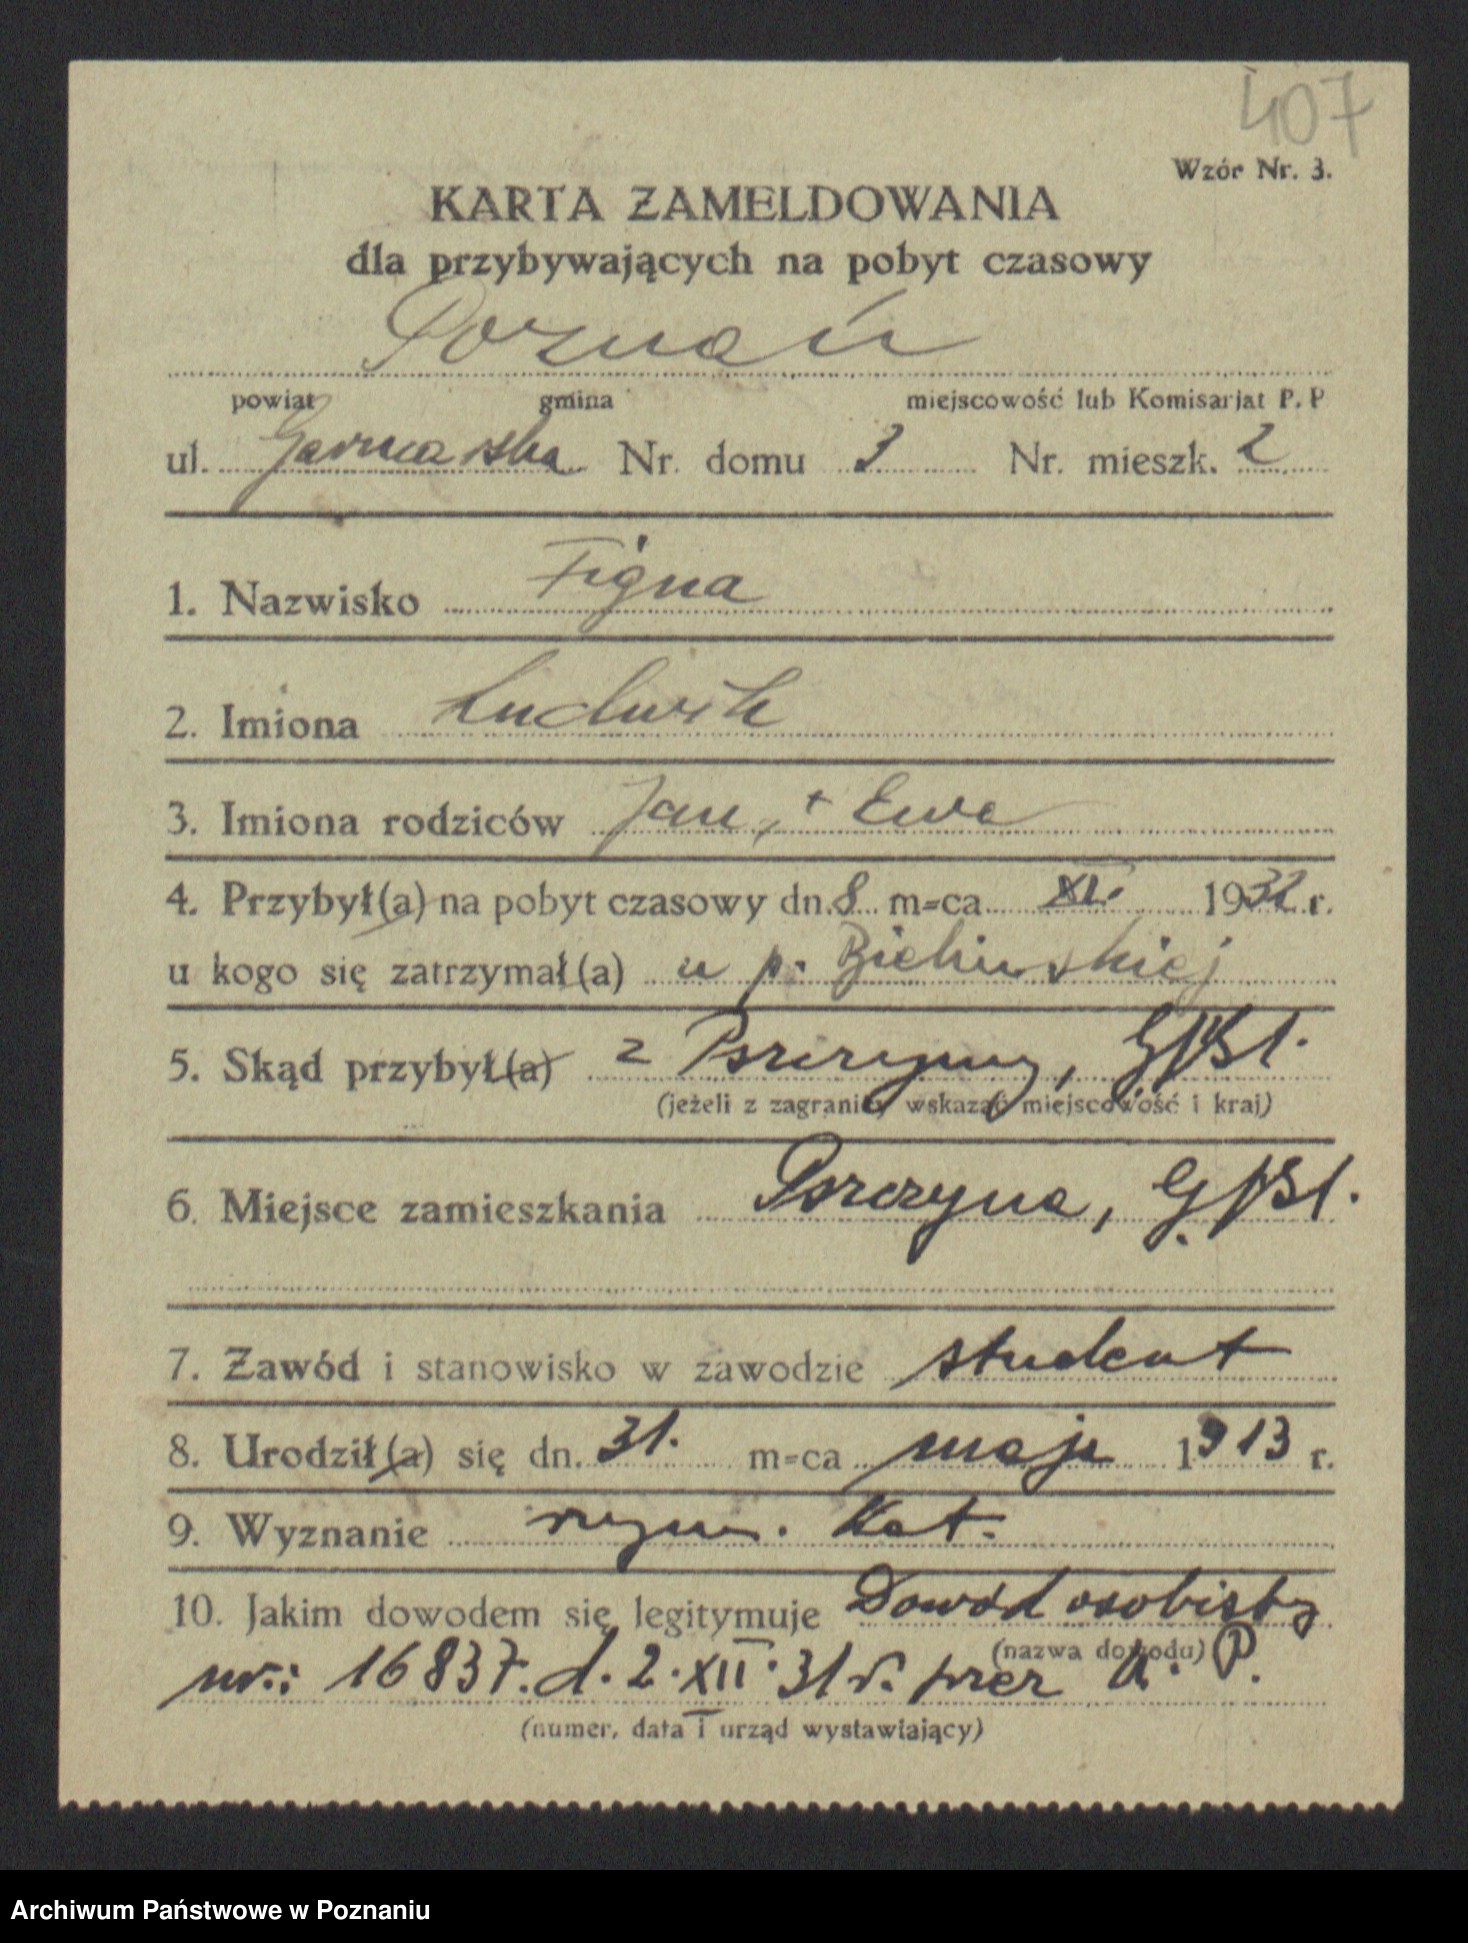 407
Wzór Nr. 3.
KARTA ZAMELDOWANIA
dla przybywających na pobyt czasowy
Poznań
powiat gmina miejscowość lub Komisarjat P. P
ul. Garncarska Nr. domu 3 Nr. mieszk. 2
1. Nazwisko Figna
2. Imiona Ludwik
3. Imiona rodziców Jan, + Ewa
4. Przybył(a) na pobyt czasowy dn. 8 m-ca XI. 1932 r.
u kogo się zatrzymał(a) u p.
5. Skąd przybył(a) z Pszczyny, G/Śl.
(jeżeli z zagranicy wskazać miejscowość i kraj)
6. Miejsce zamieszkania Pszczyna, G/Śl.
7. Zawód i stanowisko w zawodzie student
8. Urodził(a) się dn. 31. m-ca maja 1913 r.
9. Wyznanie rzym. Kat.
10. Jakim dowodem się legitymuje Dowód osobisty
(nazwa dowodu)
nr.: 16837. d. 2.XII.31 r. przez P.
(numer, data i urząd wystawiający)
Archiwum Państwowe w Poznaniu